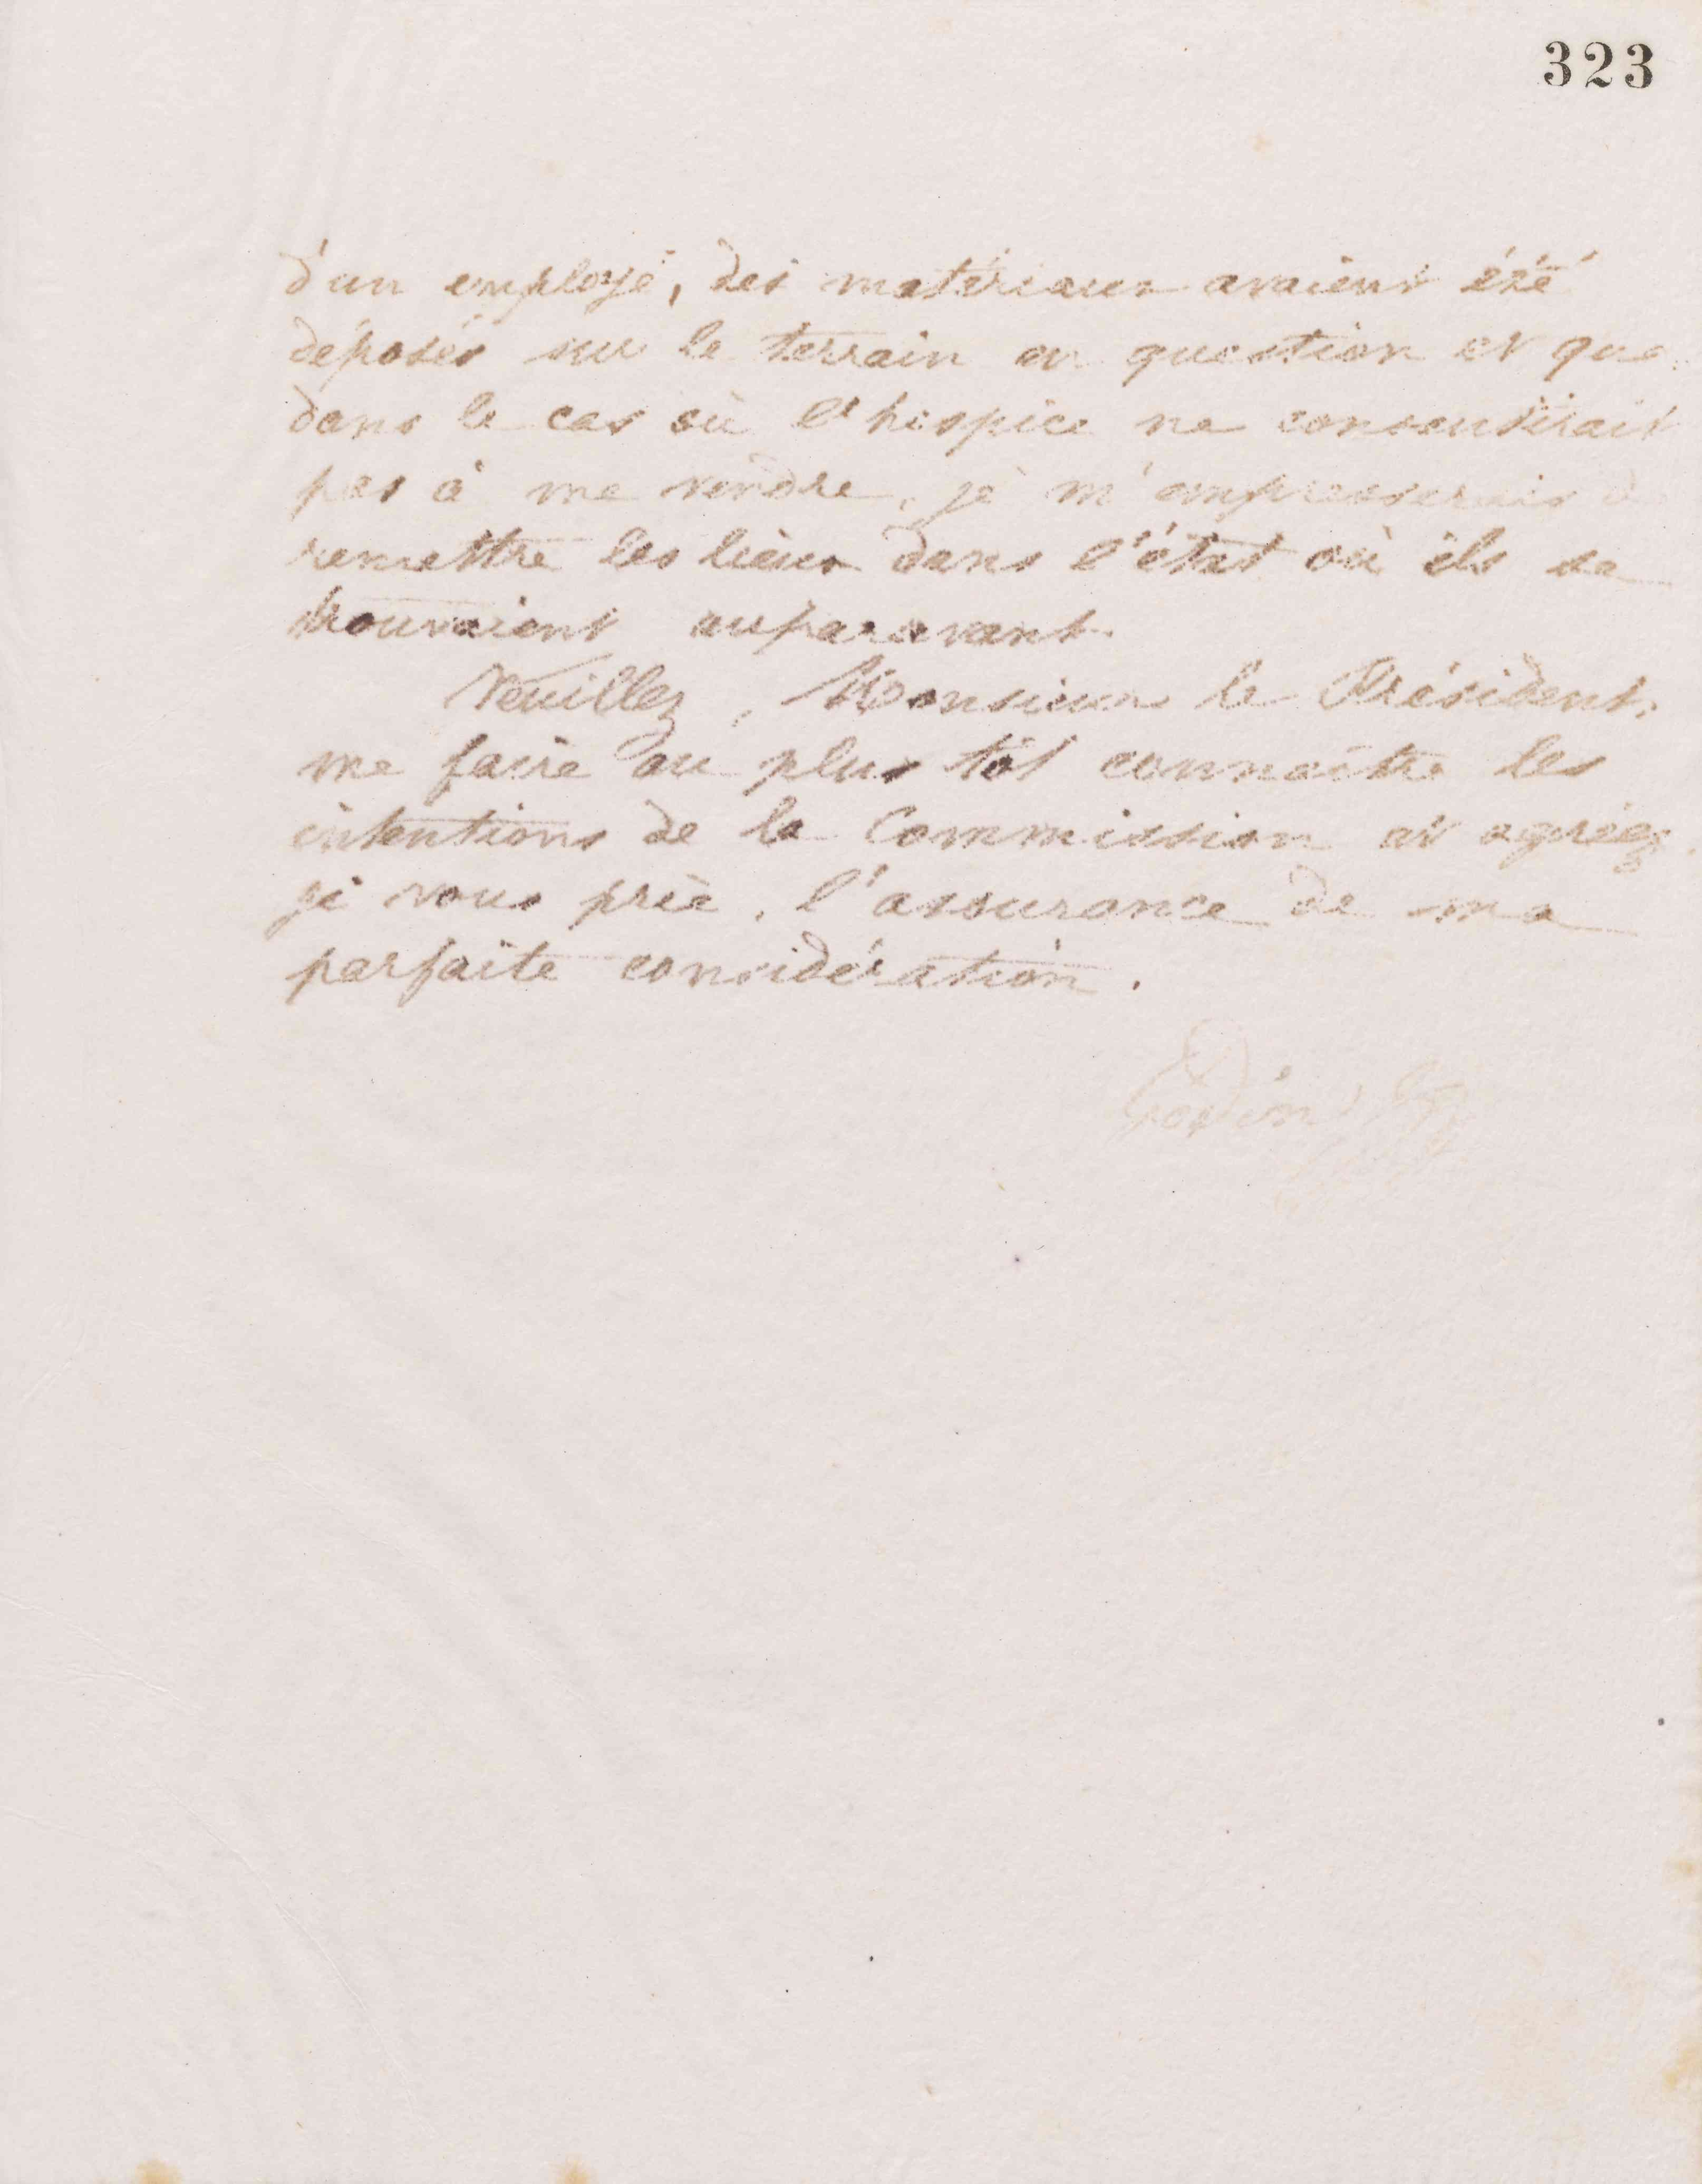 323
d'un employé, des matériaux avaient été
déposés sur le terrain en question et que
dans le cas où l'hospice ne consentirait
pas à me vendre, je m'empresserais d
remettre les lieux dans l'état où ils se
trouvaient auparavant.
Veuillez, Monsieur le Président,
me faire au plus tôt connaître les
intentions de la Commission et agréez,
je vous prie, l'assurance de ma
parfaite considération.
Godin